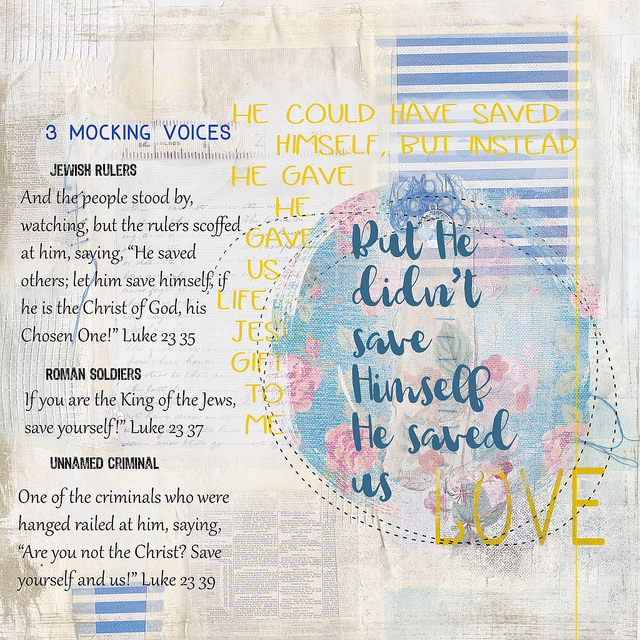 3 MOCKING VOICES
JEWISH RULERS
And the people stood by,
watching, but the rulers scoffed
at him, saying, “He saved
others; let him save himself, if
he is the Christ of God, his
Chosen One!” Luke 23 35
ROMAN SOLDIERS
If you are the King of the Jews,
save yourself!” Luke 23 37
UNNAMED CRIMINAL
One of the criminals who were
hanged railed at him, saying,
“Are you not the Christ? Save
yourself and us!” Luke 23 39
HE COULD HAVE SAVED
HIMSELF, BUT INSTEAD
HE GAVE
HE
GAVE
US
LIFE
JES
GIFT
TO
ME
But He
didn't
save
Himself
He saved
us
LOVE